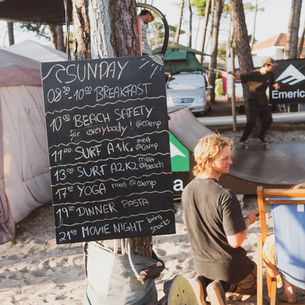 SUNDAY
08³⁰-10⁰⁰ BREAKFAST
10⁰⁰ BEACH SAFETY
for everybody! @camp
11⁰⁰ SURF A1K2 meet @camp
13⁰⁰ SURF A2K2 meet @beach
17⁰⁰ YOGA meet @camp
19³⁰ DINNER PASTA
21⁰⁰ MOVIE NIGHT bring snacks
Emerica